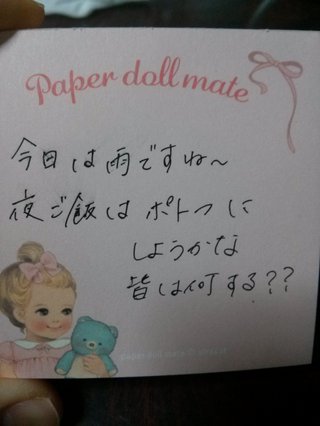 Paper doll mate
今日は雨ですね〜
夜ご飯はポトフに
しようかな
皆は何する??
paper doll mate